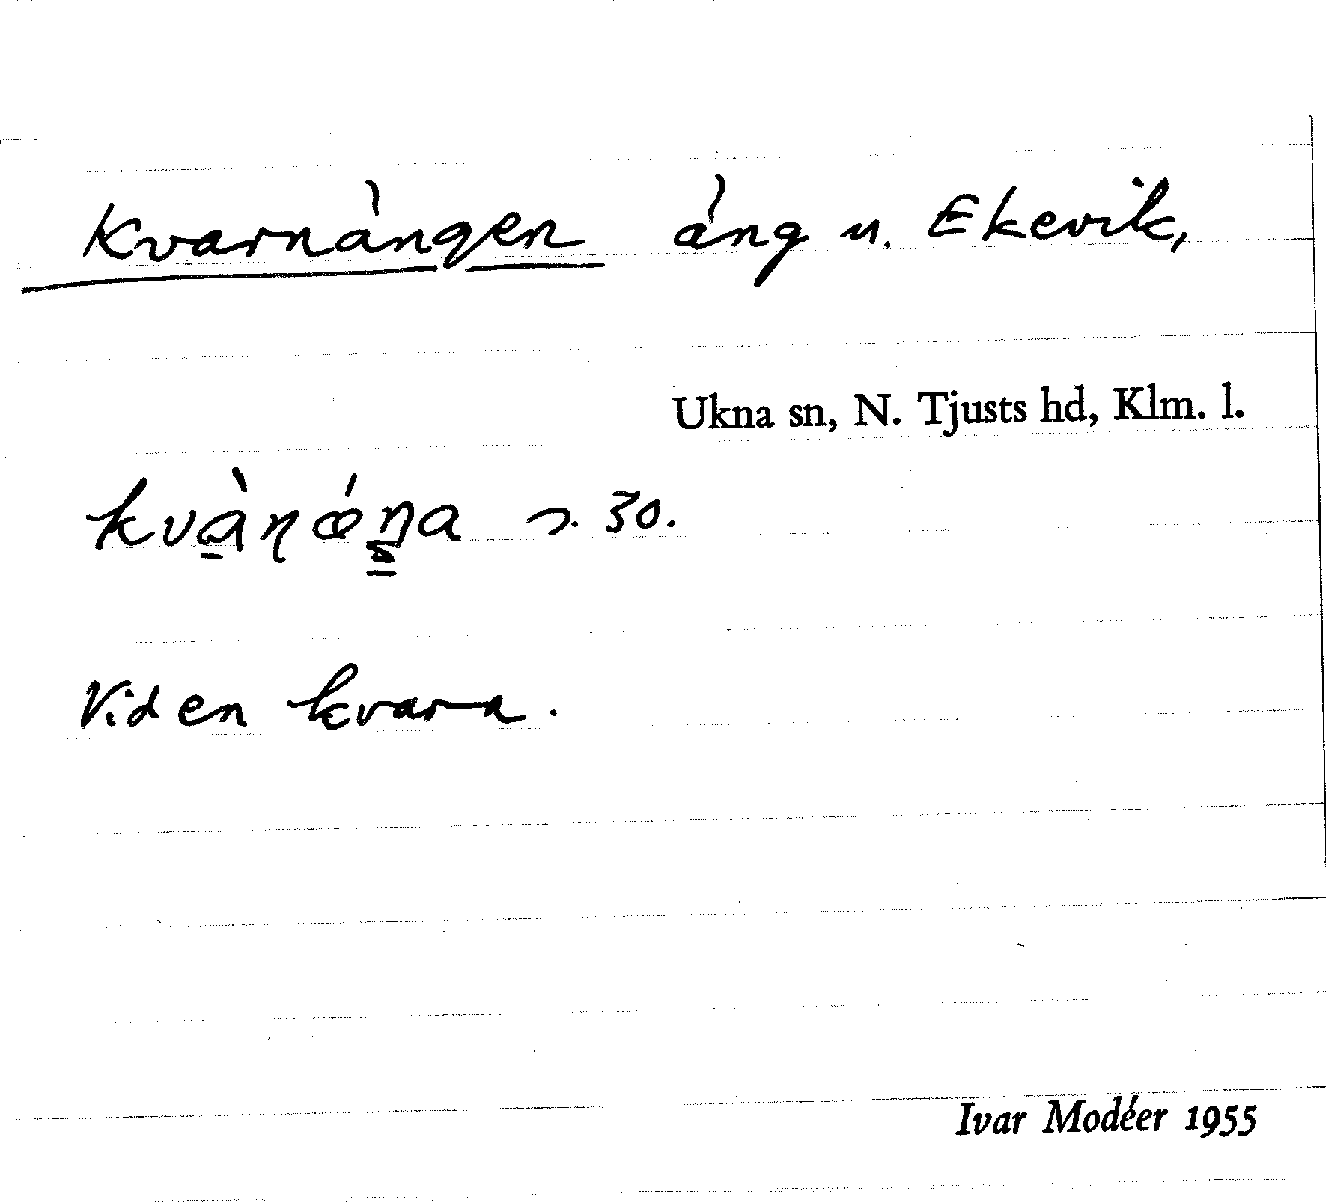 Kvarnängen äng u. Ekevik,
Ukna sn, N. Tjusts hd, Klm. l.
30.
Vid en kvarn.
Ivar Modéer 1955